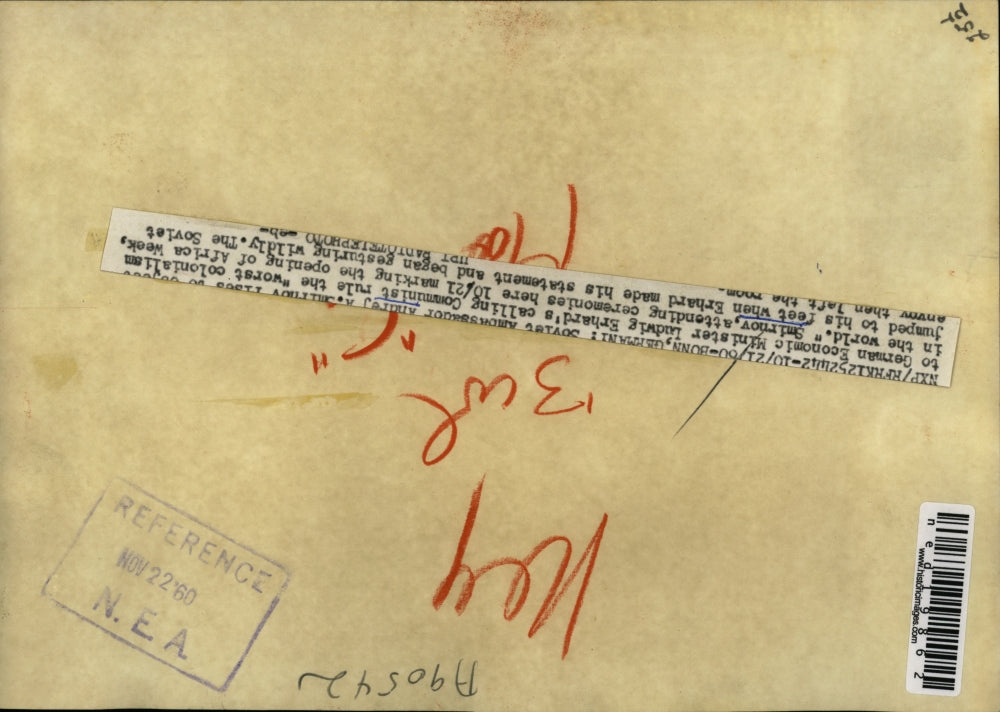 NXP/RFRK1252442-10/21/60-BONN, GERMANY: Soviet Ambassador Andrej A. Smirnov rises to
to German Economic Minister Ludwig Erhard's calling Communist rule the "worst colonialism
in the world." Smirnov, attending ceremonies here 10/21 marking the opening of Africa Week,
jumped to his feet when Erhard made his statement and began gesturing wildly. The Soviet
then left the room.
UPI RADIOTELEPHOTO -eb-
"C"
3 col
Key
A90542
252
REFERENCE
NOV 22 '60
N. E. A.
ned19862
www.historicimages.com